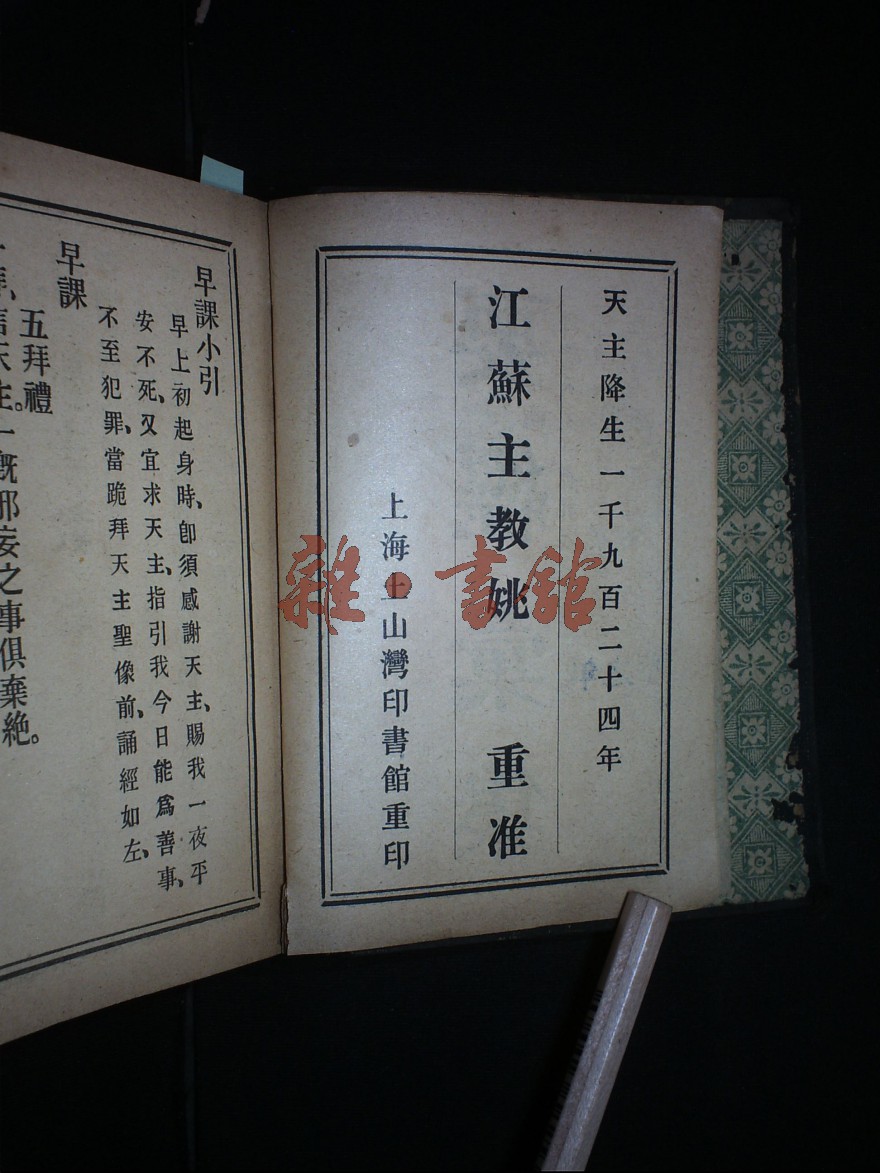 天主降生一千九百二十四年
江蘇主教姚 重准
上海土山灣印書館重印
早課小引
早上初起身時、卽須感謝天主、賜我一夜平
安不死、又宜求天主、指引我今日能爲善事、
不至犯罪、當跪拜天主聖像前、誦經如左、
早課
五拜禮
一拜、信天主。一概邪妄之事俱棄絶。
雜·書館